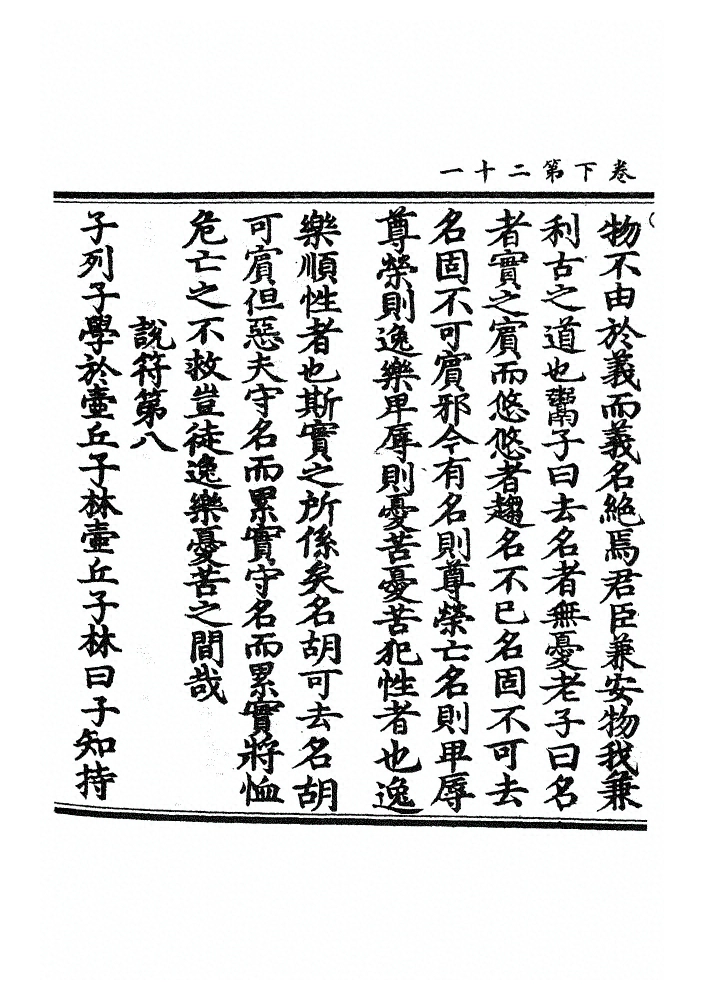 卷下第二十一
物不由於義而義名絶焉君臣兼安物我兼
利古之道也鬻子曰去名者無憂老子曰名
者實之賓而悠悠者趨名不已名固不可去
名固不可賓邪今有名則尊榮亡名則卑辱
尊榮則逸樂卑辱則憂苦憂苦犯性者也逸
樂順性者也斯實之所係矣名胡可去名胡
可賓但惡夫守名而累實守名而累實將恤
危亡之不救豈徒逸樂憂苦之間哉
說符第八
子列子學於壺丘子林壺丘子林曰子知持